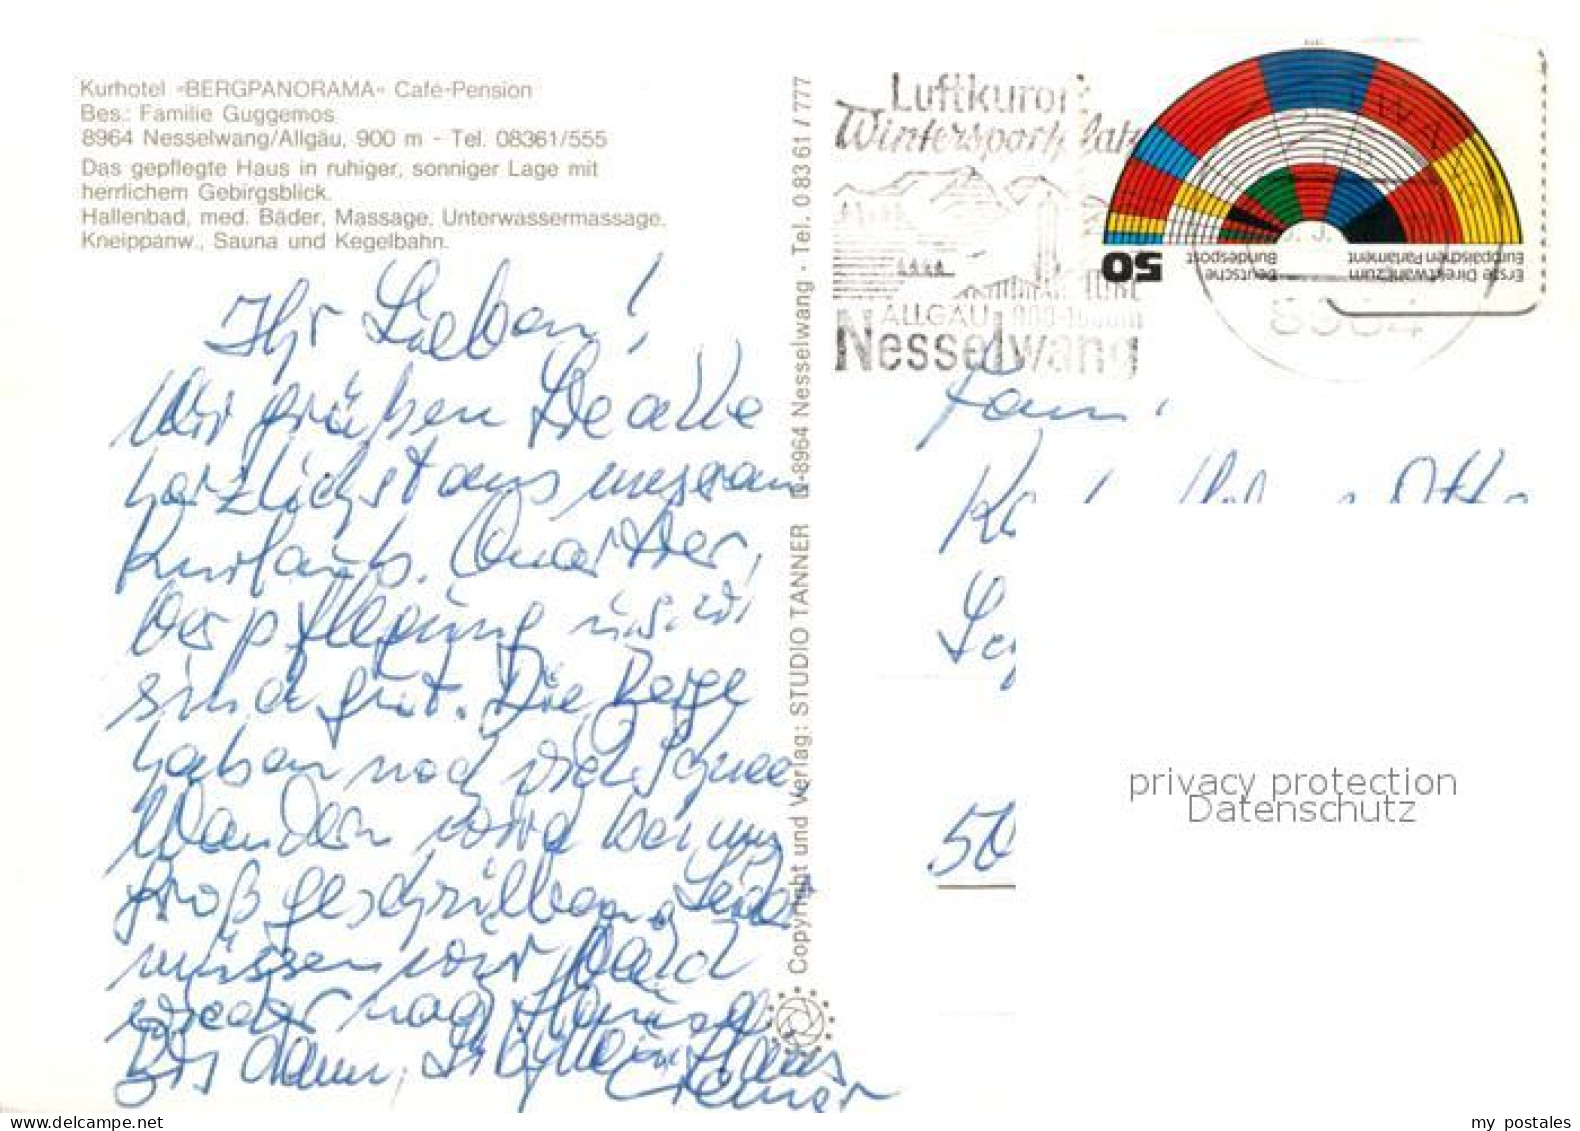 Kurhotel «BERGPANORAMA» Café-Pension
Bes.: Familie Guggemos
8964 Nesselwang/Allgäu, 900 m - Tel. 08361/555
Das gepflegte Haus in ruhiger, sonniger Lage mit
herrlichem Gebirgsblick.
Hallenbad, med. Bäder, Massage, Unterwassermassage,
Kneippanw., Sauna und Kegelbahn.
Ihr Lieben!
Wir grüßen Sie alle
herzlichst aus unserem
Kurlaub. Quartier,
Verpflegung u.s.w.
sind gut. Die Berge
haben noch viel Schnee
Wandern wird bei uns
groß geschrieben. Leider
müssen wir bald
wieder nach Hause.
Bis dann, Hans
Cremer
Copyright und Verlag: STUDIO TANNER D-8964 Nesselwang - Tel. 0 83 61 / 777
Luftkurort
Wintersportplatz
ALLGÄU 900-1600m
Nesselwang
8964
50
Deutsche
Bundespost
Erste Direktwahl zum
Europäischen Parlament
Fam.
50
privacy protection
Datenschutz
my postales